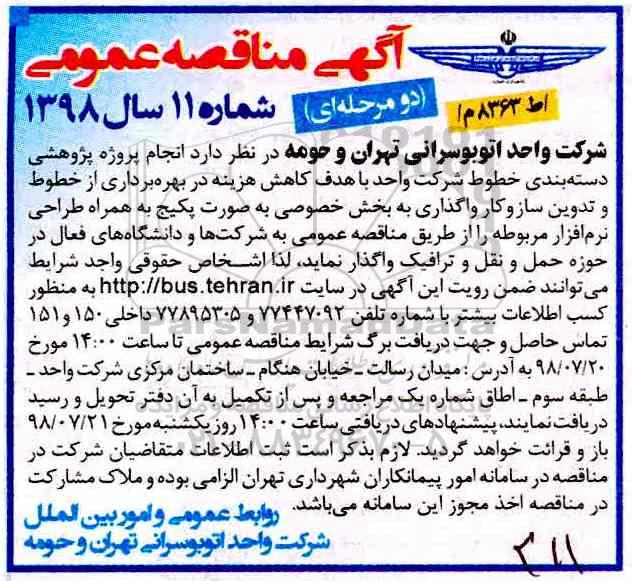 آگهی مناقصه عمومی
(دو مرحله‌ای)
شماره ۱۱ سال ۱۳۹۸
اط ۸۳۶۳ م/
شرکت واحد اتوبوسرانی تهران و حومه در نظر دارد انجام پروژه پژوهشی
دسته‌بندی خطوط شرکت واحد با هدف کاهش هزینه در بهره‌برداری از خطوط
و تدوین سازوکار واگذاری به بخش خصوصی به صورت پکیج به همراه طراحی
نرم‌افزار مربوطه را از طریق مناقصه عمومی به شرکت‌ها و دانشگاه‌های فعال در
حوزه حمل و نقل و ترافیک واگذار نماید، لذا اشخاص حقوقی واجد شرایط
می‌توانند ضمن رویت این آگهی در سایت http://bus.tehran.ir به منظور
کسب اطلاعات بیشتر با شماره تلفن ۷۷۴۴۷۰۹۲ و ۷۷۸۹۵۳۰۵ داخلی ۱۵۰ و ۱۵۱
تماس حاصل و جهت دریافت برگ شرایط مناقصه عمومی تا ساعت ۱۴:۰۰ مورخ
۹۸/۰۷/۲۰ به آدرس: میدان رسالت ـ خیابان هنگام ـ ساختمان مرکزی شرکت واحد ـ
طبقه سوم ـ اطاق شماره یک مراجعه و پس از تکمیل به آن دفتر تحویل و رسید
دریافت نمایند، پیشنهادهای دریافتی ساعت ۱۴:۰۰ روز یکشنبه مورخ ۹۸/۰۷/۲۱
باز و قرائت خواهد گردید. لازم بذکر است ثبت اطلاعات متقاضیان شرکت در
مناقصه در سامانه امور پیمانکاران شهرداری تهران الزامی بوده و ملاک مشارکت
در مناقصه اخذ مجوز این سامانه می‌باشد.
روابط عمومی و امور بین الملل
شرکت واحد اتوبوسرانی تهران و حومه
ParsNamadData